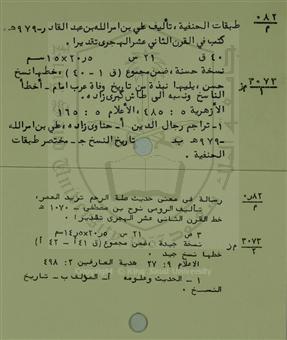 ٠٨٢
م
طبقات الحنفية، تأليف علي بن امرالله بن عبد القادر - ٩٧٩هـ.
كتب في القرن الثاني عشر الهجري تقديرا.
٤٠ ق ٢١ س ٢٠٫٥×١٥سم
نسخة حسنة، ضمن مجموع (ق ١ - ٤٠)، خطها نسخ
٣٠٧٣
١
م ز
حسن، يليها نبذة من تاريخ وفاة عرب امام - أخطأ
الناسخ ونسبه الى طاش كبرى زاده.
الأزهرية ٥ : ٤٨٥، الأعلام ٥ : ١٦٥
١- تراجم رجال الدين أ- حناوي زاده، علي بن امرالله
- ٩٧٩هـ ب- تاريخ النسخ ج- مختصر طبقات
الحنفية.
رسالة في معنى حديث صلة الرحم تزيد العمر،
تأليف الرومي نوح بن مصطفى - ١٠٧٠ هـ
خط القرن الثاني عشر الهجري تقديرا.
٣ ق ٢١ س ٢٠٫٥×١٤٫٥سم
نسخة جيدة، ضمن مجموع (ق ٤١أ - ٤٢ أ)
٣٠٧٣
٢
م ز
خطها نسخ جيد.
الاعلام ٩: ٢٧ هدية العارفين ٢: ٤٩٨
١ - الحديث وعلومه أ- المؤلف ب - تاريخ
النسخ.